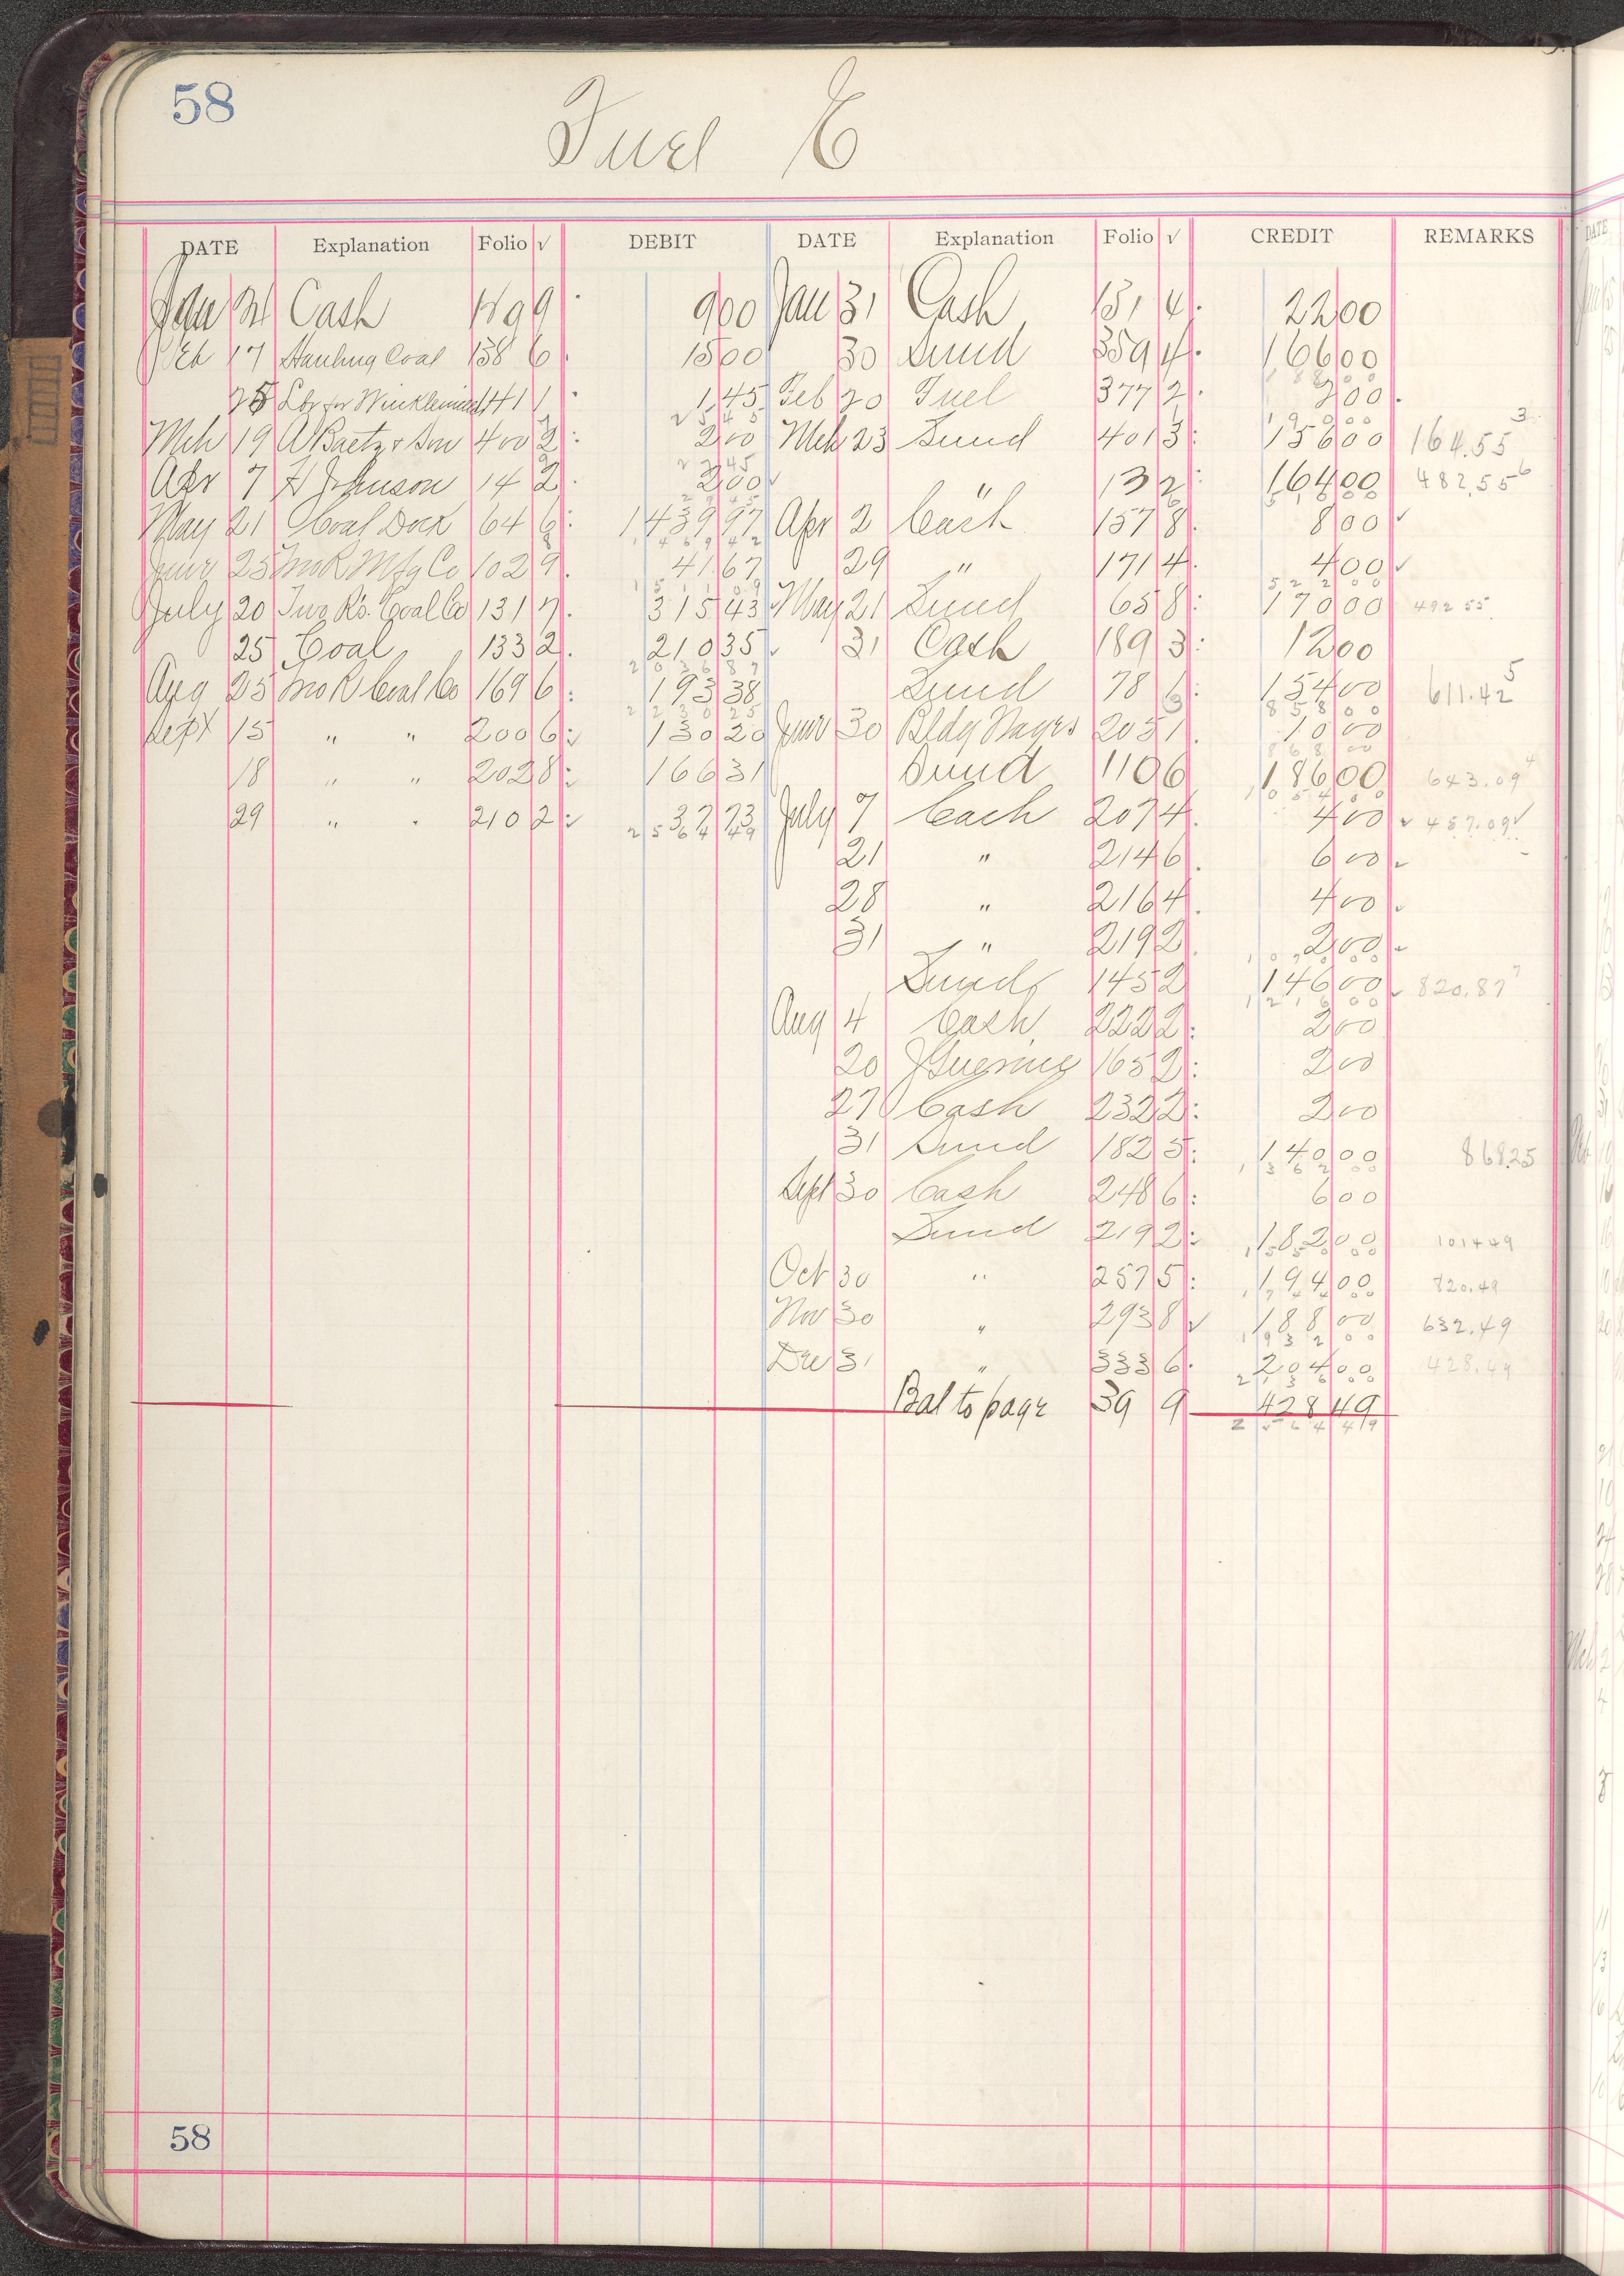 58
Fuel E
DATE Explanation Folio √ DEBIT DATE Explanation Folio √ CREDIT REMARKS
Jan 31 Cash 119 9 9 00 Jan 31 Cash 151 4 22 00
Feb 17 Hauling Coal 138 6 15 00 30 Sund 359 4 166 00
188 00
25 Lbr for 141 1 1 45 Feb 20 Fuel 377 2 2 00
25 45 190 00
Mch 19 A Baetz & Son 400 2 2 00 Mch 23 Sund 401 3 156 00 164.55 3
27 45
Apr 7 H Johnson 14 2 2 00 13 2 " 164 00 482.55 6
29 45 510 00
May 21 Coal Dock 64 6 1439 97 Apr 2 Cash 157 8 8 00
1469 42
June 25 Mo R Mfg Co 102 9 41 67 29 " 171 4 4 00
1511 09 522 00
July 20 Two Rs. Coal Co 131 7 315 43 May 21 Sund 65 8 170 00 492 55
25 Coal 133 2 210 35 31 Cash 189 3 12 00
2036 87
Aug 25 Mo R Coal Co 169 6 193 38 Sund 78 6 154 00 611.42 5
2230 25 858 00
Sept 15 " " 200 6 130 20 June 30 Bldg Wages 205 1 10 00
868 00
18 " " 202 8 166 31 Sund 110 6 186 00 643.09 4
1054 00
29 " " 210 2 37 73 July 7 Cash 207 4 4 00 457.09
2564 49
21 " 214 6 6 00
28 " 216 4 4 00
31 " 219 2 2 00
1070 00
Sund 145 2 146 00 820.87 7
1216 00
Aug 4 Cash 222 2 2 00
20 165 2 2 00
27 Cash 232 2 2 00
31 Sund 182 5 140 00 868.25
1362 00
Sept 30 Cash 248 6 6 00
Sund 219 2 182 00 1014 49
1550 00
Oct 30 " 257 5 194 00 820.49
1744 00
Nov 30 " 293 8 188 00 632.49
1932 00
Dec 31 " 333 6 204 00 428.49
2136 00
Bal to page 39 9 428 49
2564 49
58